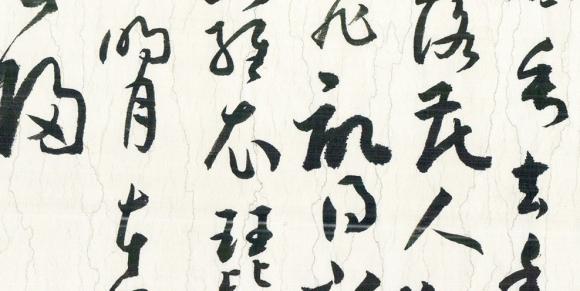 垂去年
落花人
飛記得
羅衣琵琶
明月在
歸